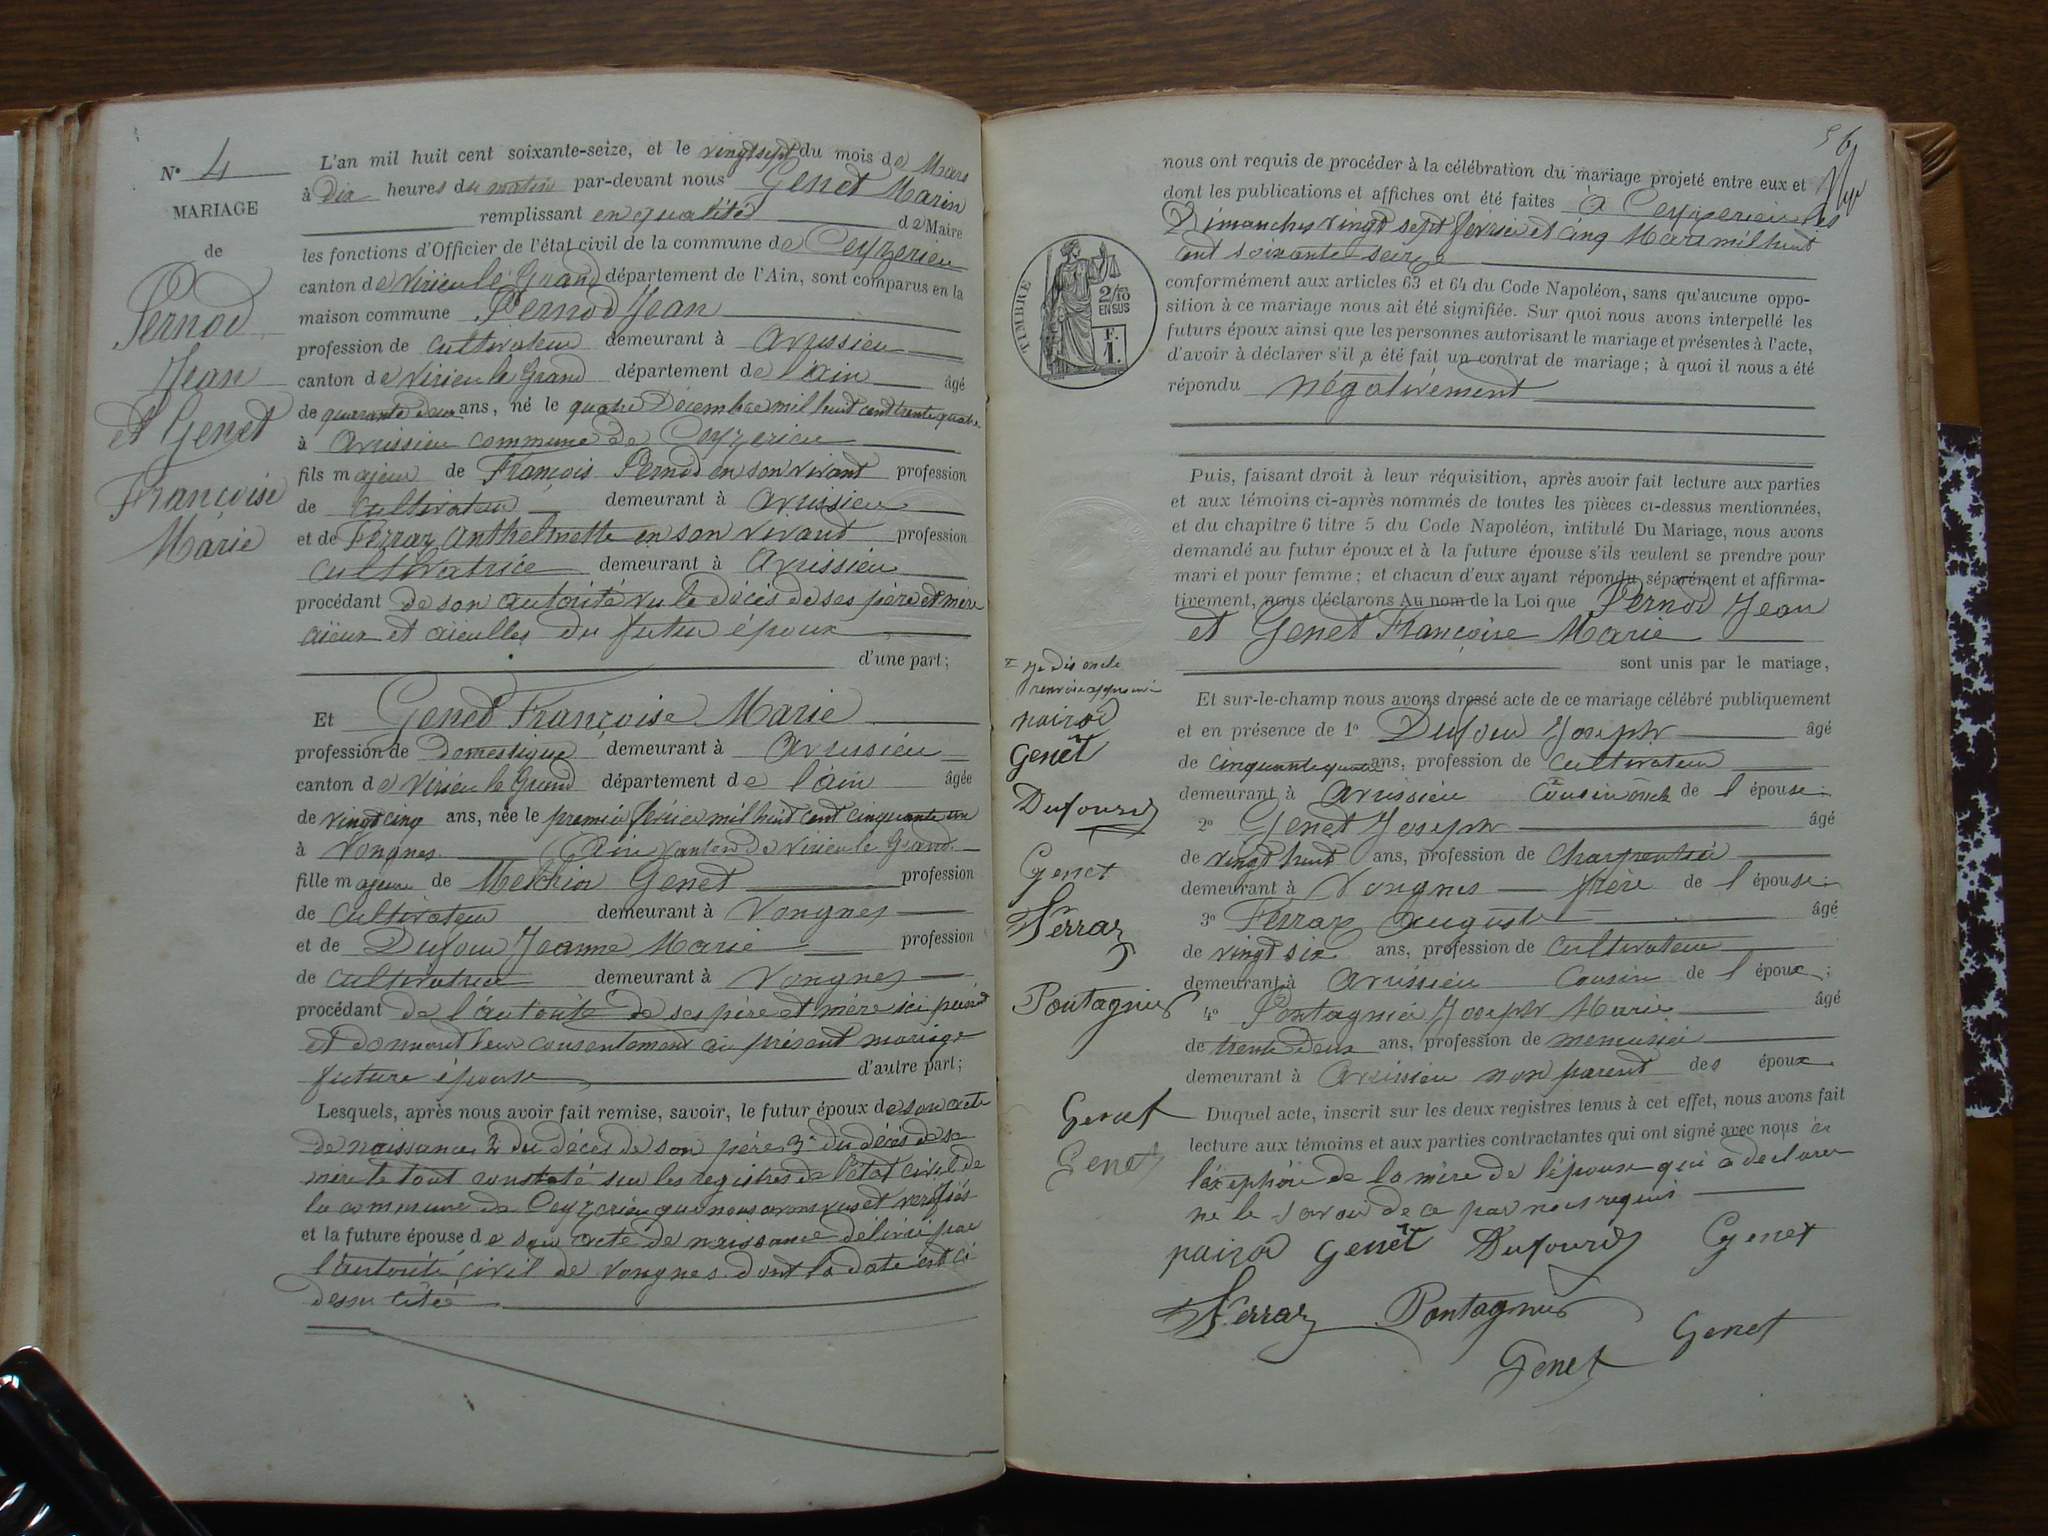 N° 4
MARIAGE
de
Pernod
Jean
et Genet
Françoise
Marie
L'an mil huit cent soixante-seize, et le vingt sept du mois de Mars
à Dix heures du matin par-devant nous Genet Marin
remplissant en qualité de Maire
les fonctions d'Officier de l'état civil de la commune de Ceyzerieu
canton de Virieu le Grand département de l'Ain, sont comparus en la
maison commune Pernod Jean
profession de cultivateur demeurant à Avrissieu
canton de Virieu le Grand département de l'ain âgé
de quarante deux ans, né le quatre Décembre mil huit cent trente quatre
à Avrissieu commune de Ceyzerieu
fils majeur de François Pernod en son vivant profession
de cultivateur demeurant à avrissieu
et de Ferraz Anthelmette en son vivant profession
cultivatrice demeurant à Avrissieu
procédant de son autorité vu le décès de ses père et mère
aïeux et aïeulles du futur époux
d'une part;
Et Genet Françoise Marie
profession de Domestique demeurant à Avrissieu
canton de Virieu le Grand département de l'ain âgée
de vingt cinq ans, née le premier février mil huit cent cinquante un
à Vongnes Ain canton de Virieu le Grand
fille majeure de Melchior Genet profession
de cultivateur demeurant à Vongnes
et de Dufour Jeanne Marie profession
de cultivatrice demeurant à Vongnes
procédant de l'autorité de ses père et mère ici présent
et donnant leur consentement au présent mariage
future épouse d'autre part;
Lesquels, après nous avoir fait remise, savoir, le futur époux de son acte
de naissance 2° du décès de son père 3° du décès de sa
mère le tout constaté sur les registres de l'état civil de
la commune de Ceyzerieu que nous avons vus et vérifiés
et la future épouse de son acte de naissance délivré par
l'autorité civil de Vongnes dont la date est ci
dessu citée
56
nous ont requis de procéder à la célébration du mariage projeté entre eux et
dont les publications et affiches ont été faites à Ceyzerieu les
Dimanches vingt sept février et cinq Mars mil huit
cent soixante seize
conformément aux articles 63 et 64 du Code Napoléon, sans qu'aucune oppo-
sition à ce mariage nous ait été signifiée. Sur quoi nous avons interpellé les
futurs époux ainsi que les personnes autorisant le mariage et présentes à l'acte,
d'avoir à déclarer s'il a été fait un contrat de mariage; à quoi il nous a été
répondu négativement
TIMBRE
2/10
EN SUS
F.
1.
Puis, faisant droit à leur réquisition, après avoir fait lecture aux parties
et aux témoins ci-après nommés de toutes les pièces ci-dessus mentionnées,
et du chapitre 6 titre 5 du Code Napoléon, intitulé Du Mariage, nous avons
demandé au futur époux et à la future épouse s'ils veulent se prendre pour
mari et pour femme; et chacun d'eux ayant répondu séparément et affirma-
tivement, nous déclarons Au nom de la Loi que Pernod Jean
et Genet Françoise Marie
sont unis par le mariage,
Et sur-le-champ nous avons dressé acte de ce mariage célébré publiquement
et en présence de 1° Dufour Joseph âgé
de cinquante quatre ans, profession de cultivateur
demeurant à Avrissieu cousin oncle de l'épouse
2° Genet Joseph âgé
de vingt huit ans, profession de charpentier
demeurant à Vongnes frère de l'épouse
3° Ferraz Auguste âgé
de vingt six ans, profession de cultivateur
demeurant à Avrissieu cousin de l'époux;
4° Pontagnier Joseph Marie âgé
de trente deux ans, profession de menuisier
demeurant à Avrissieu non parent des époux
Duquel acte, inscrit sur les deux registres tenus à cet effet, nous avons fait
lecture aux témoins et aux parties contractantes qui ont signé avec nous à
l'exeption de la mère de l'épouse qui a déclarer
ne le savoir de ce par nous requis
je dis oncle
renvoi approuvé
pairod
Genet
Dufour
Genet
Ferraz
Pontagnier
Genet
Genet
pairod Genet Dufour Genet
Ferraz Pontagnier
Genet Genet